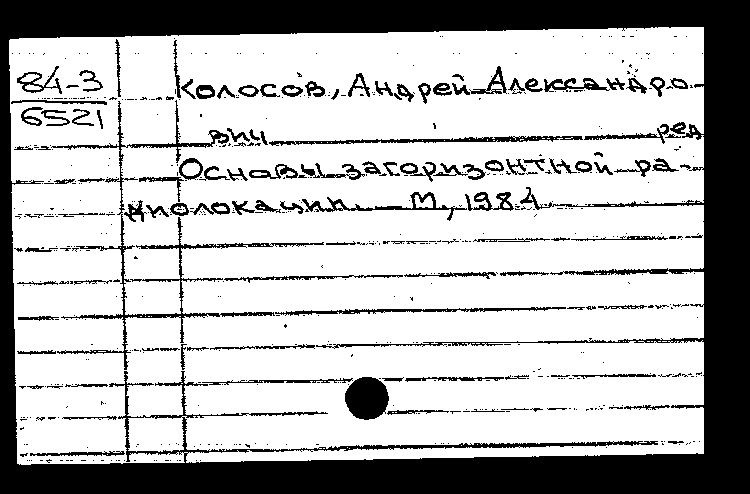 84-3
6521
Колосов, Андрей Александро
вич ред
Основы загоризонтной ра-
диолокации. — М., 1984